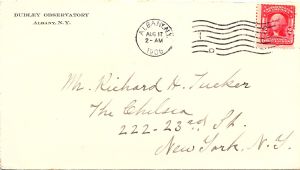 DUDLEY OBSERVATORY
ALBANY, N.Y.
ALBANY, N.Y.
AUG 17
2-AM
1906
Mr. Richard H. Tucker
The Chelsea
222-23rd St.
New York. N.Y.